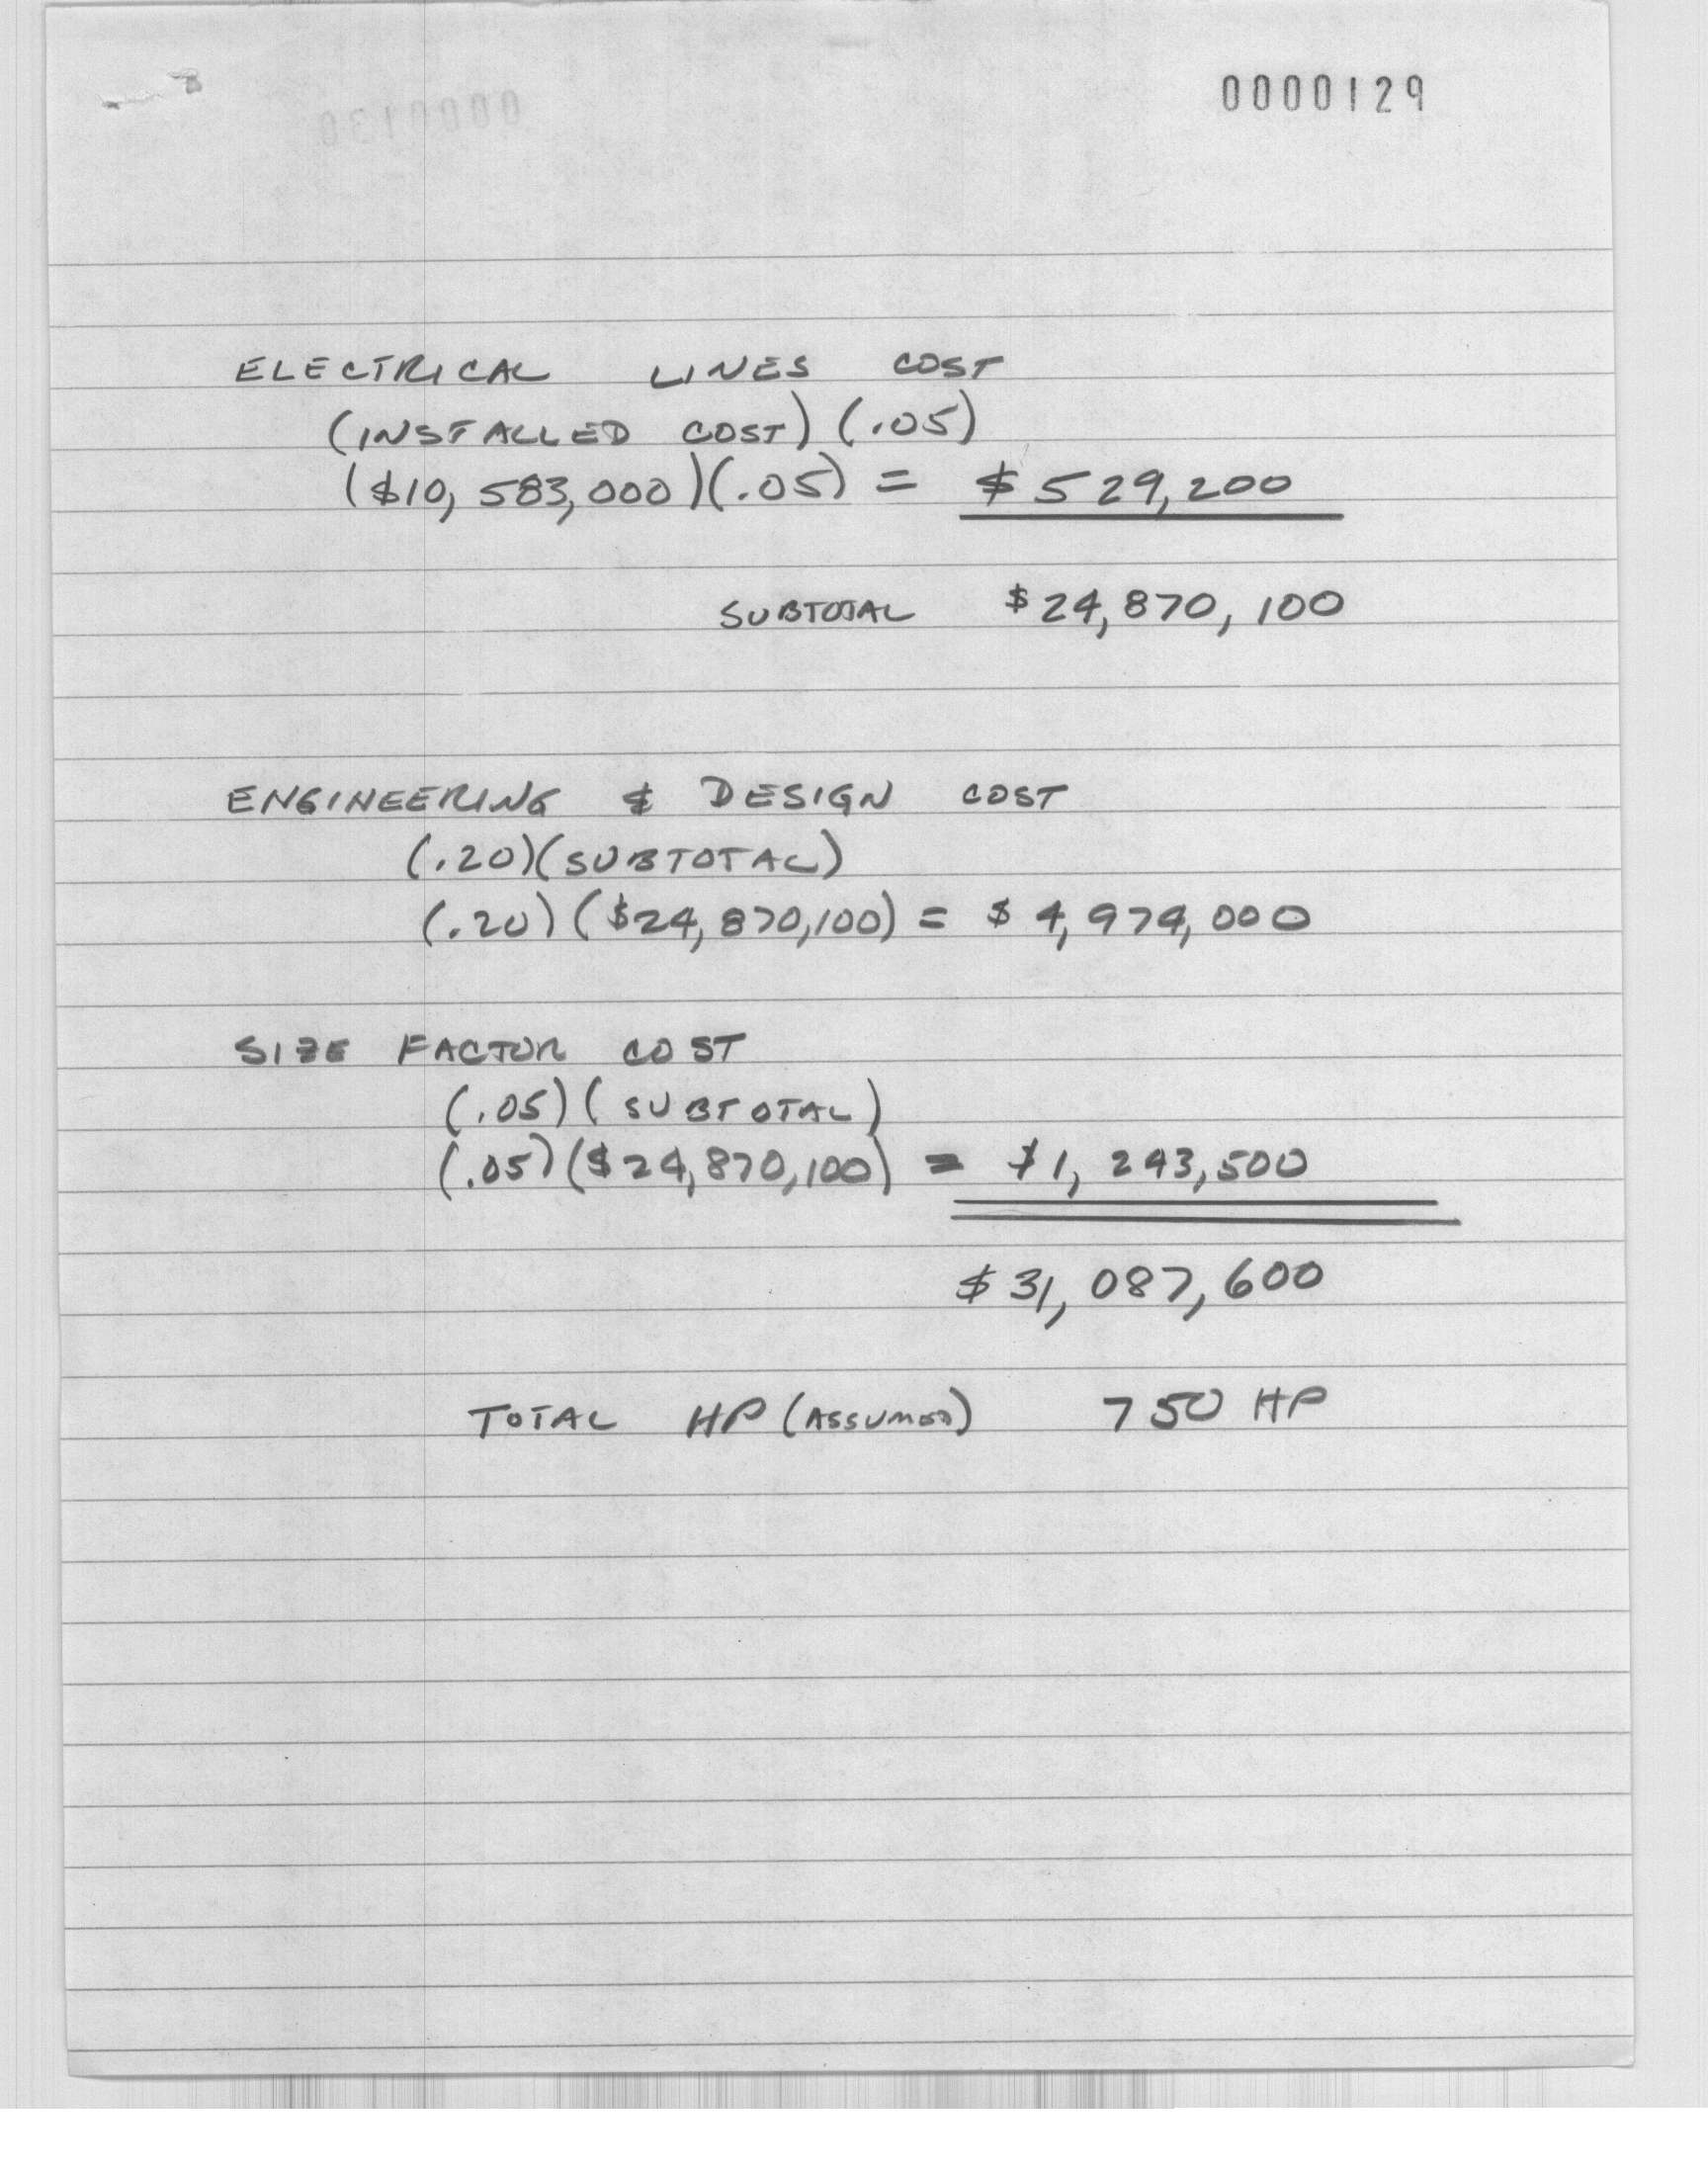 0000129
0000130
ELECTRICAL LINES COST
(INSTALLED COST) (.05)
($10,583,000)(.05) = $529,200
SUBTOTAL $24,870,100
ENGINEERING & DESIGN COST
(.20)(SUBTOTAL)
(.20)($24,870,100) = $4,974,000
SIZE FACTOR COST
(.05)(SUBTOTAL)
(.05)($24,870,100) = $1,243,500
$31,087,600
TOTAL HP (ASSUMED) 750 HP